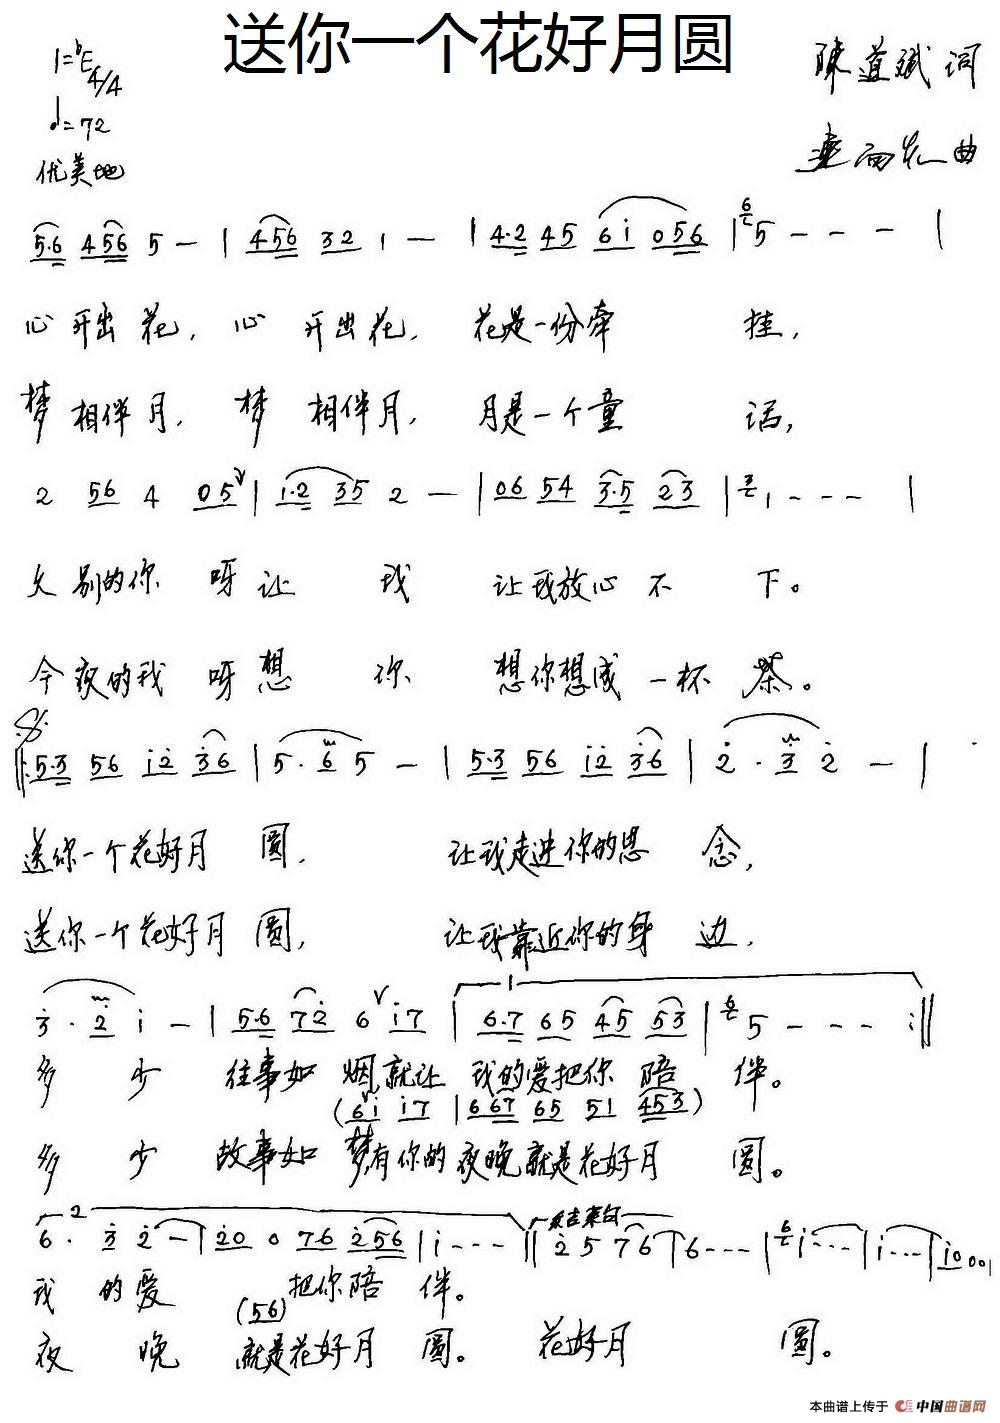 送你一个花好月圆
1=bE 4/4
陈道斌 词
=72
曲
优美地
5.6 456 5 — | 456 32 1 — | 4.2 45 6i 056 | 6 5 - - - |
心开出花，心 开出花，花是一份牵 挂，
梦相伴月，梦 相伴月，月是一个童 话，
2 56 4 05 V | 1.2 35 2 — | 06 54 3.5 23 | 3 1 - - - |
久别的你 呀让 我 让我放心不 下。
今夜的我 呀想 你 想你想成一杯茶。
‖: 5.3 56 i2 36 | 5 . 6 5 — | 5.3 56 i2 36 | 2 . 3 2 — |
送你一个花好月 圆， 让我走进你的思 念，
送你一个花好月 圆， 让我靠近你的身 边，
3 . 2 i — | 5.6 72 6 V i7 | 1 6.7 65 45 53 | 6 5 - - - :‖
多 少 往事如 烟，就让 我的爱把你 陪 伴。
(6 V i i7 | 667 65 51 453)
多 少 故事如 梦，有你的夜晚就是花好月 圆。
2
结束句
6 . 3 2 — | 20 0 76 256 | i - - - ‖ 2 5 76 | 6 - - - | 6 i - - - | i - - - | i0 0 0 ‖
我 的爱 把你陪 伴。
(56)
夜 晚 就是花好月 圆。 花好月 圆。
本曲谱上传于 中国曲谱网